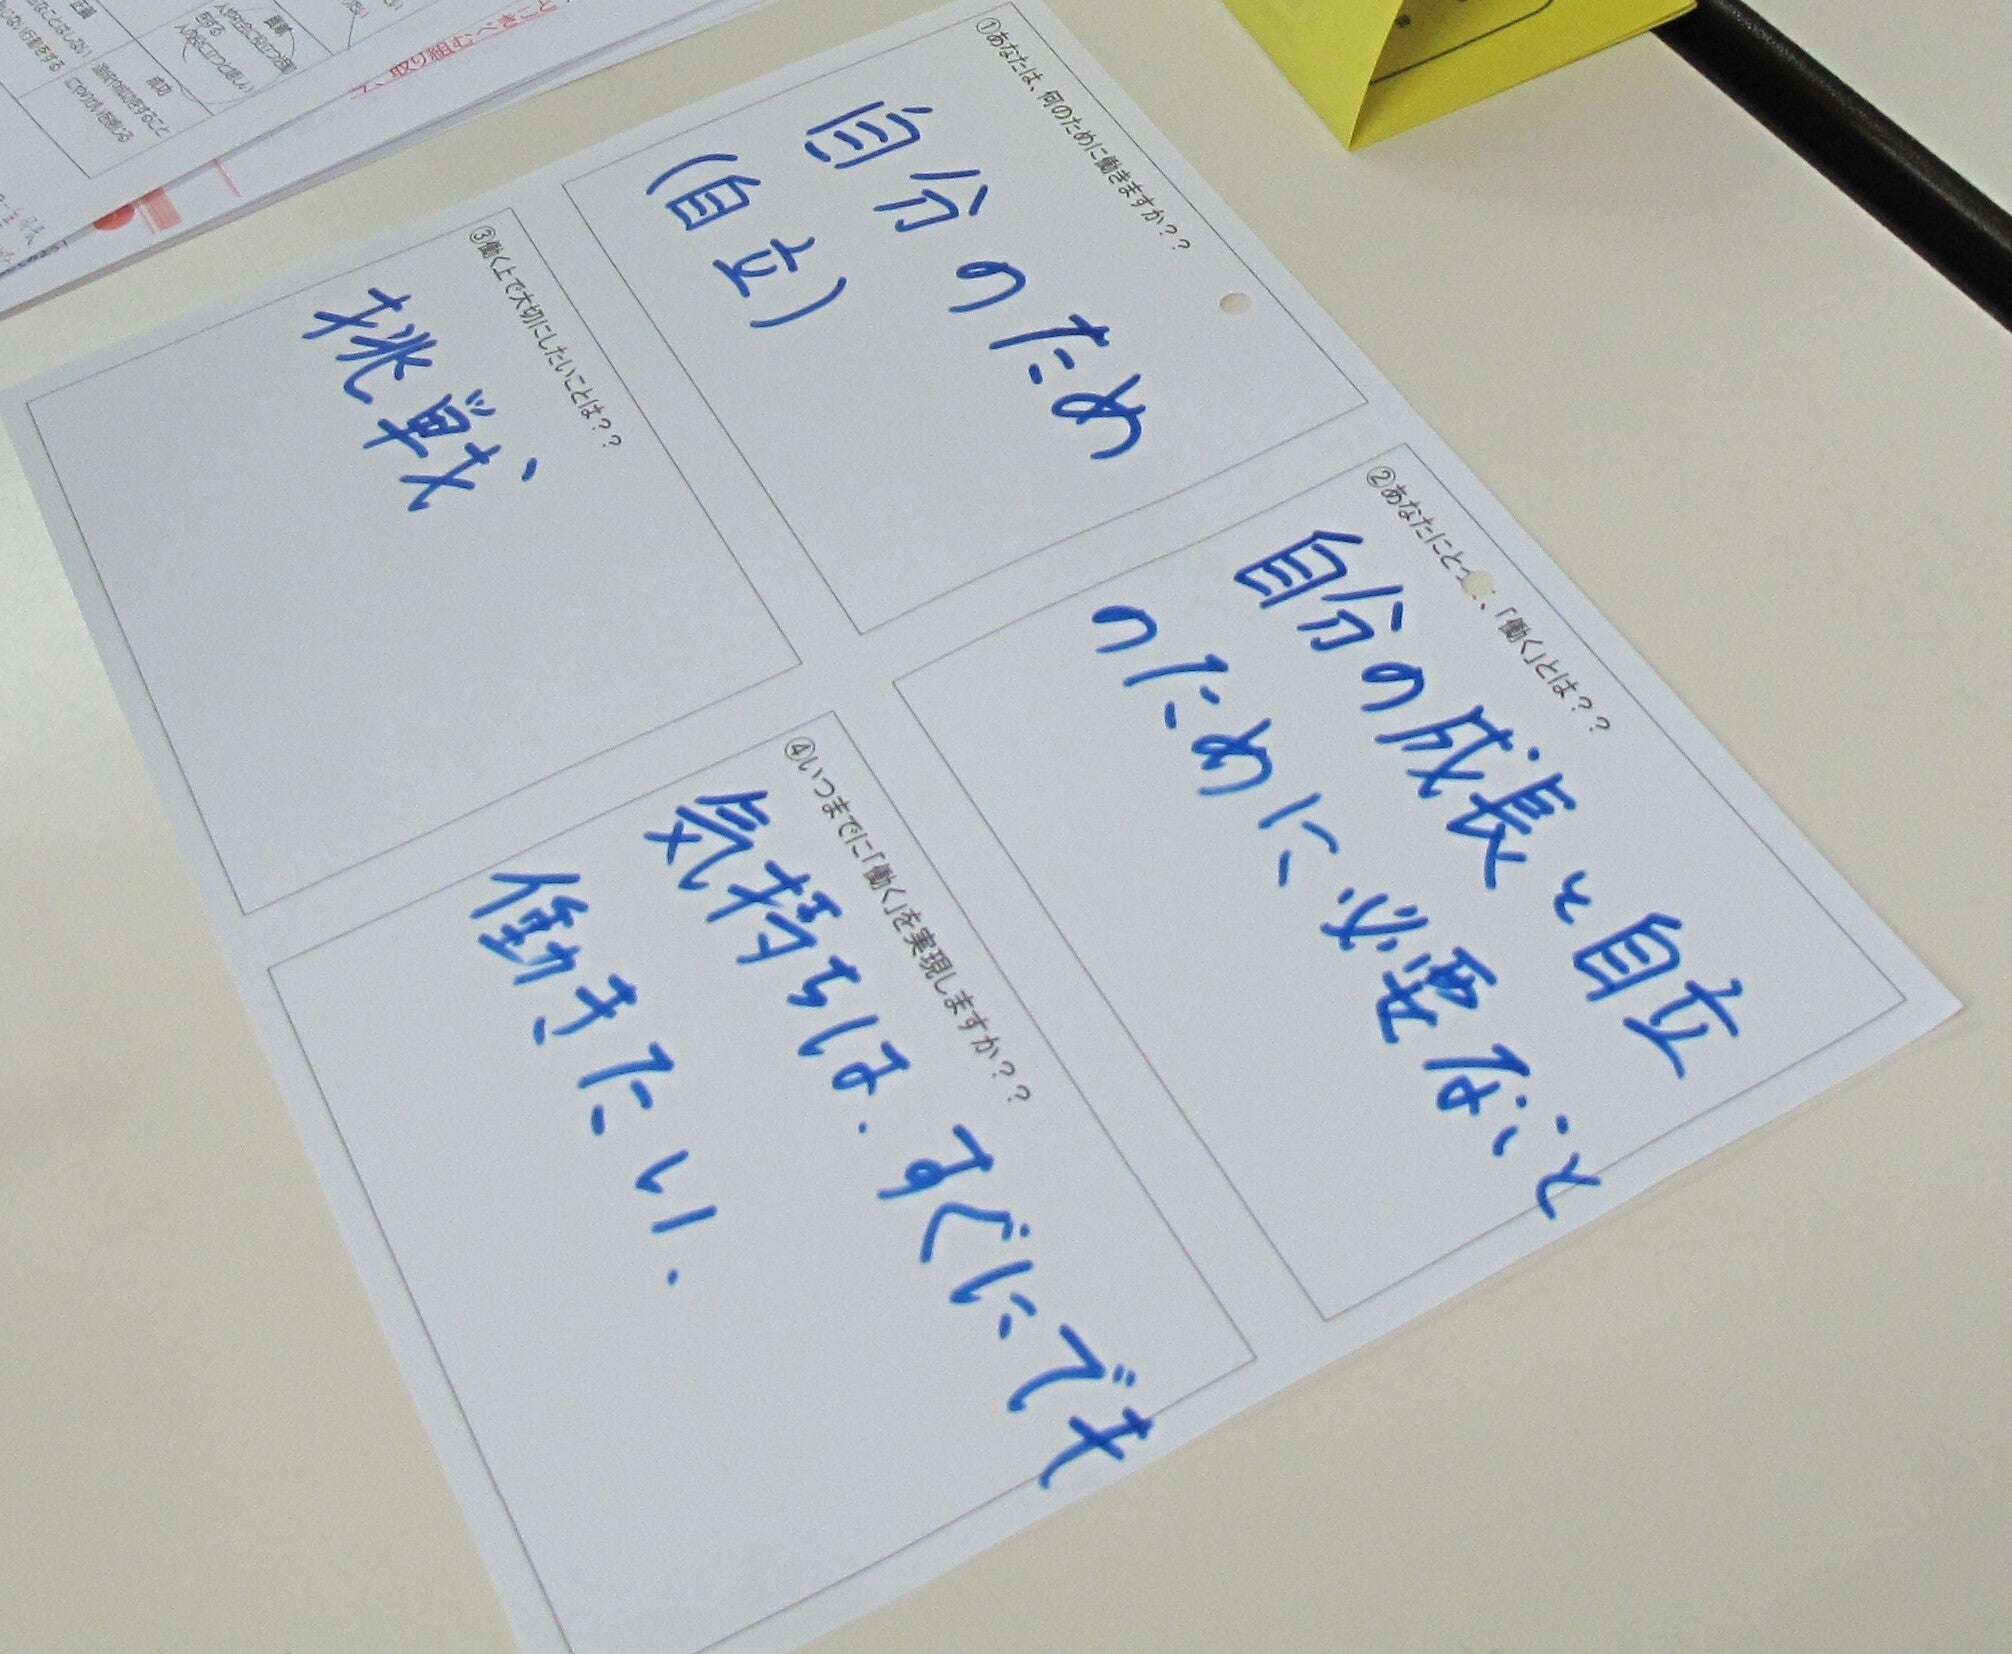 ①あなたは、何のために働きますか？？
自分のため
(自立)
②あなたにと
、「働く」とは？？
自分の成長と自立
のために必要なこと
③働く上で大切にしたいことは？？
挑戦
④いつまでに「働く」を実現しますか？？
気持ちは.すぐにでも
働きたい.
取り組むべき
成功
達成や成功をすること
にやりがいを感じる